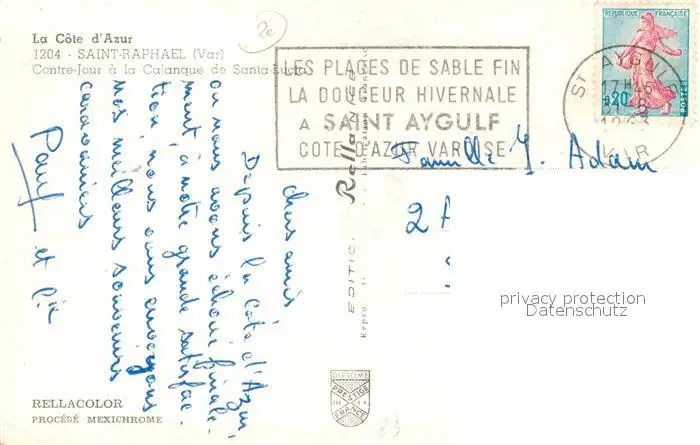 La Côte d'Azur
1204 - SAINT-RAPHAEL (Var)
Contre-Jour à la Calanque de Santa-Lucia
2e
LES PLAGES DE SABLE FIN
LA DOUCEUR HIVERNALE
A SAINT AYGULF
COTE D'AZUR VAROISE
REPUBLIQUE FRANÇAISE
0,20
POSTES
ST AYGULF
17H45
VAR
Famille J. Adam
2
chers amis
Depuis la Côte d'Azur,
où nous avons échoué finale-
ment, à notre grande satisfac-
tion, nous vous envoyons
nos meilleurs souvenirs
caravaniers
Paul et
EDITIONS Rella NICE
privacy protection
Datenschutz
DIPLOME
PRESTIGE
DE LA
FRANCE
RELLACOLOR
PROCÉDÉ MEXICHROME
83